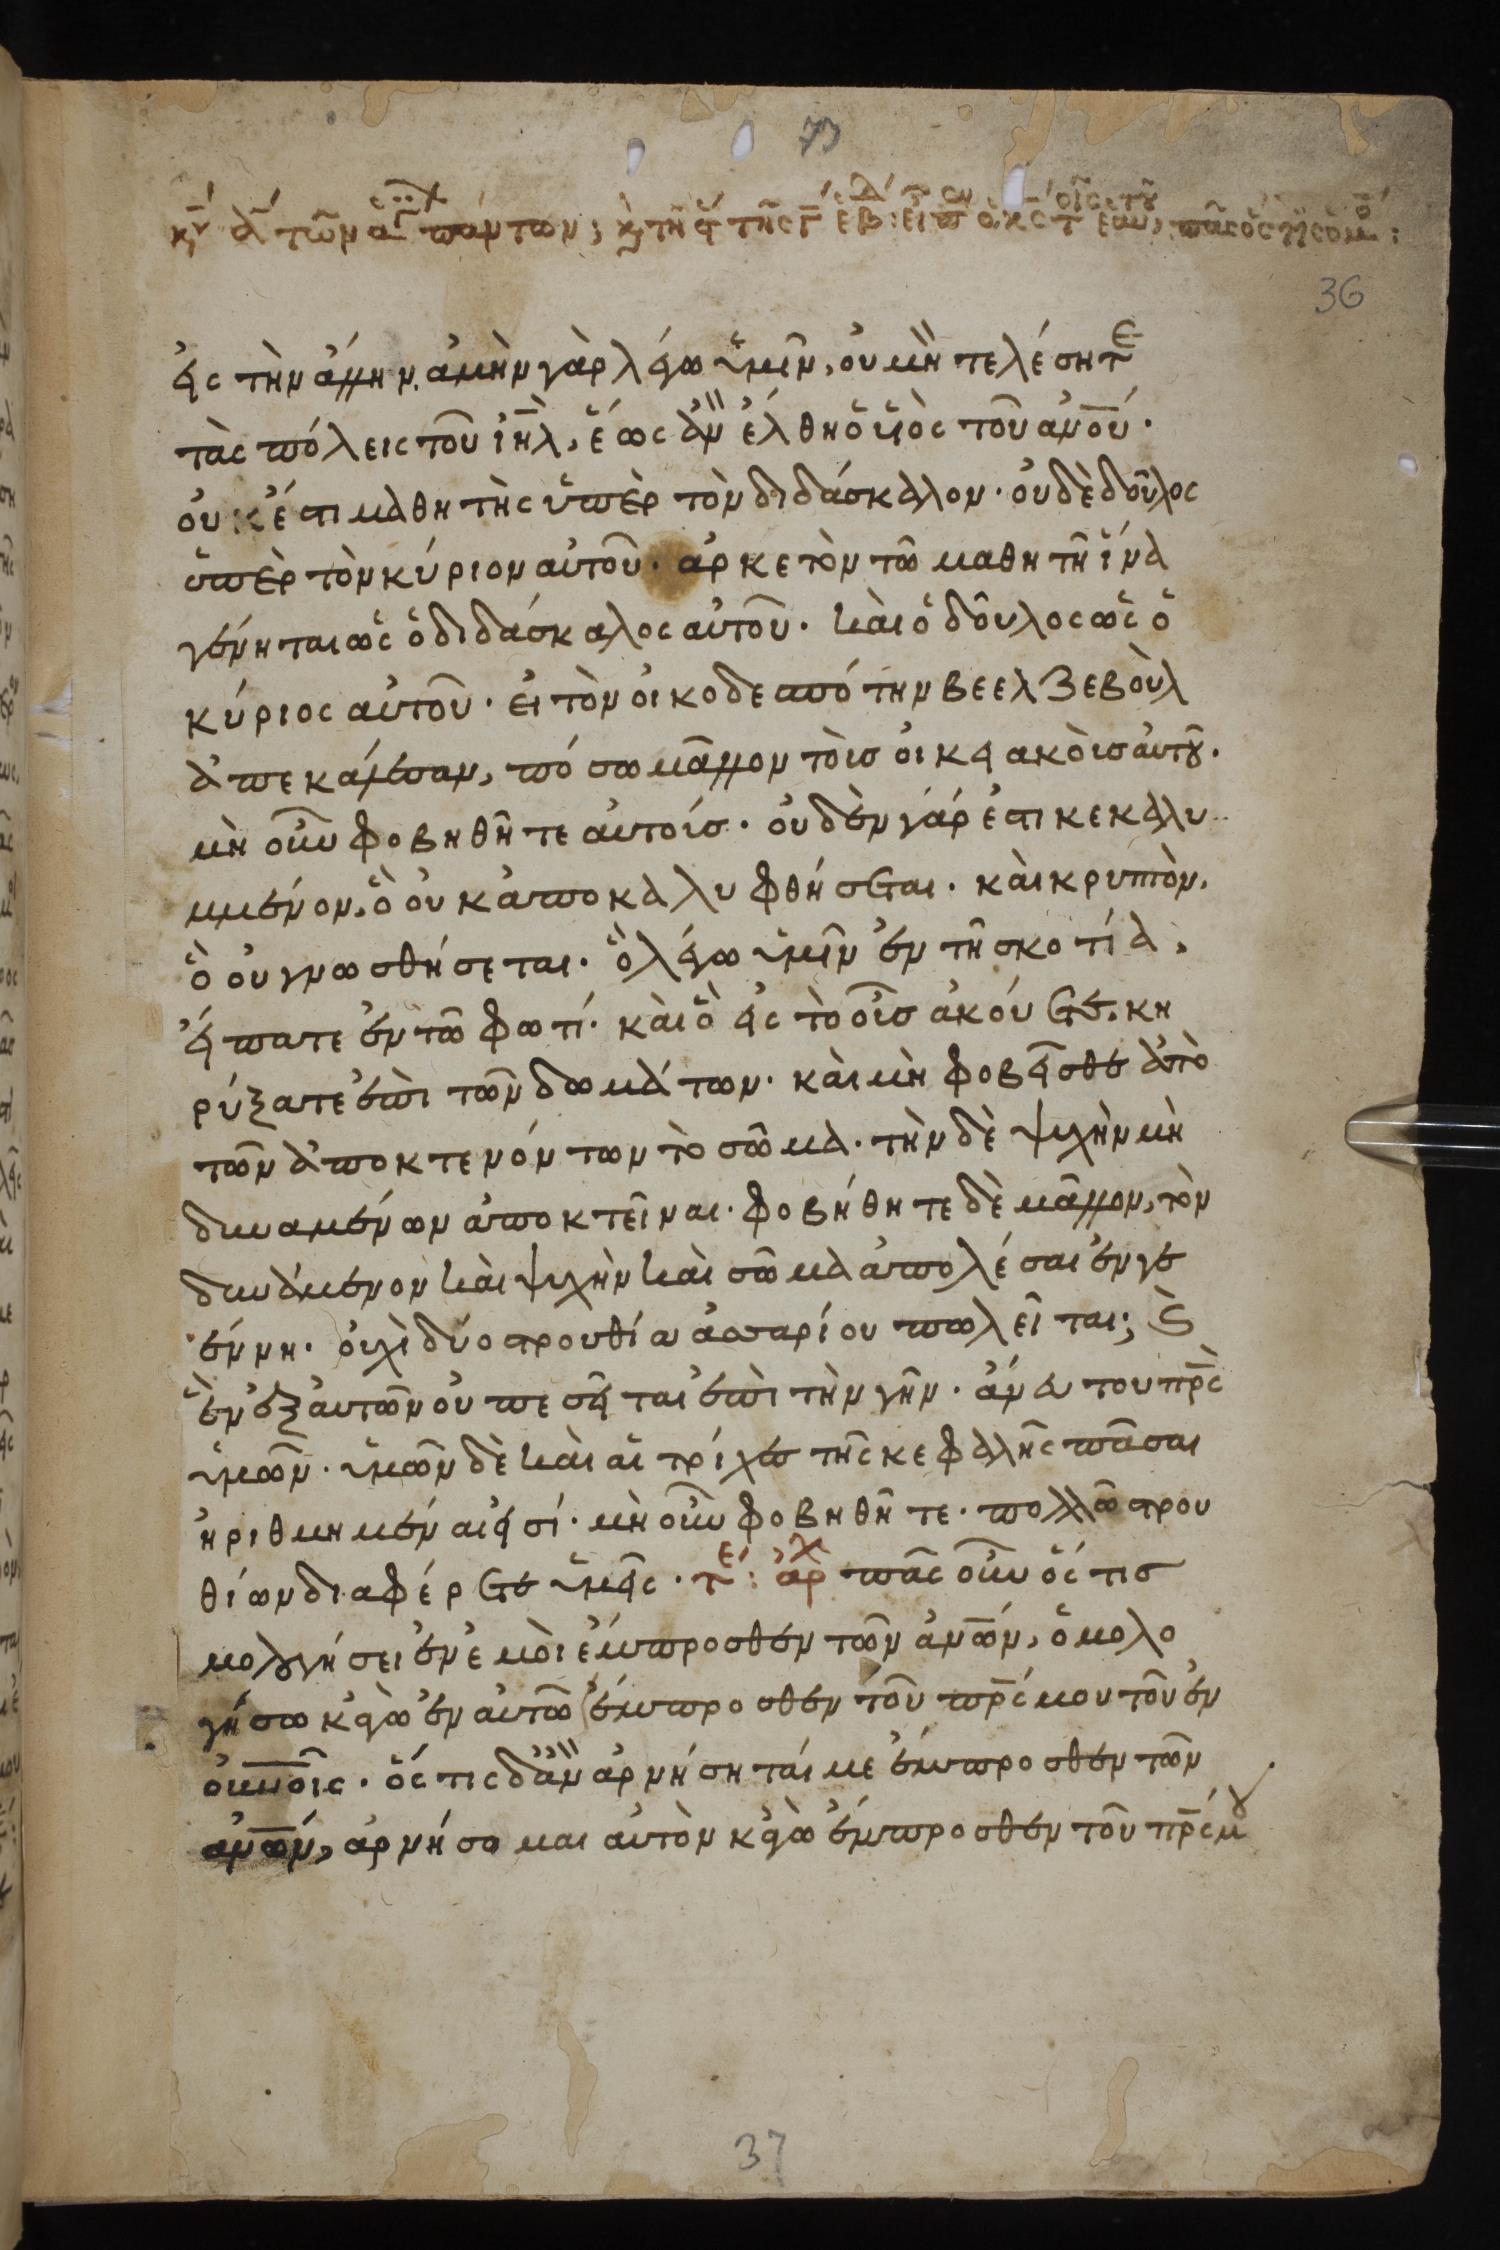 73
36
εἰς τὴν ἄλλην. ἀμὴν γὰρ λέγω ὑμῖν, οὐ μὴ τελέσητε
τὰς πόλεις τοῦ ιηλ, ἕως ἂν ἔλθη ὁ υἱὸς τοῦ ανου·
οὐκ ἔστι μαθητὴς ὑπὲρ τὸν διδάσκαλον· οὐδὲ δοῦλος
ὑπὲρ τὸν κύριον αὐτοῦ· ἀρκετὸν τῶ μαθητῆ ἵνα
γένηται ὡς ὁ διδάσκαλος αὐτοῦ· καὶ ὁ δοῦλος ὡς ὁ
κύριος αὐτοῦ· εἰ τὸν οἰκοδεσπότην βεελζεβοὺλ
ἀπεκάλεσαν, πόσω μᾶλλον τοὶς οἰκειακοὶς αὐτοῦ·
μὴ οὖν φοβηθῆτε αὐτοίς· οὐδὲν γάρ ἐστι κεκαλυ
μμένον, ὃ οὐκ ἀποκαλυφθήσεται· καὶ κρυπτὸν,
ὃ οὐ γνωσθήσεται· ὃ λέγω ὑμῖν ἐν τῆ σκοτία,
εἴπατε ἐν τῶ φωτί· καὶ ὃ εἰς τὸ οὖς ἀκούετε, κη
ρύξατε ἐπὶ τῶν δωμάτων· καὶ μὴ φοβεῖσθε ἀπὸ
τῶν ἀποκτενόντων τὸ σῶμα· τὴν δὲ ψυχὴν μὴ
δυναμένων ἀποκτεῖναι· φοβήθητε δὲ μᾶλλον, τὸν
δυνάμενον καὶ ψυχὴν καὶ σῶμα ἀπολέσαι ἐν γε
έννη· οὐχὶ δύο στρουθία ἀσσαρίου πωλεῖται; καὶ
ἓν ἐξ αὐτῶν οὐ πεσεῖται ἐπὶ τὴν γῆν· ἄνευ του πρς
ὑμῶν· ὑμῶν δὲ καὶ αἱ τρίχες τῆς κεφαλῆς πᾶσαι
ἠριθμημέναι εἰσί· μὴ οὖν φοβηθῆτε· πολλῶ στρου
θίων διαφέρετε ὑμεῖς· τε: ἀρχ πᾶς οὖν ὅστις
μολογήσει ἐν ἐμοὶ ἔμπροσθεν τῶν ανων, ὁμολο
γήσω κἀγὼ ἐν αὐτῶ ἔμπροσθεν τοῦ πρς μου τοῦ ἐν
οὐνοις· ὅστις δ' ἂν ἀρνήσηταί με ἔμπροσθεν τῶν
ανων, ἀρνήσομαι αὐτὸν κἀγὼ ἔμπροσθεν τοῦ πρς μου
37